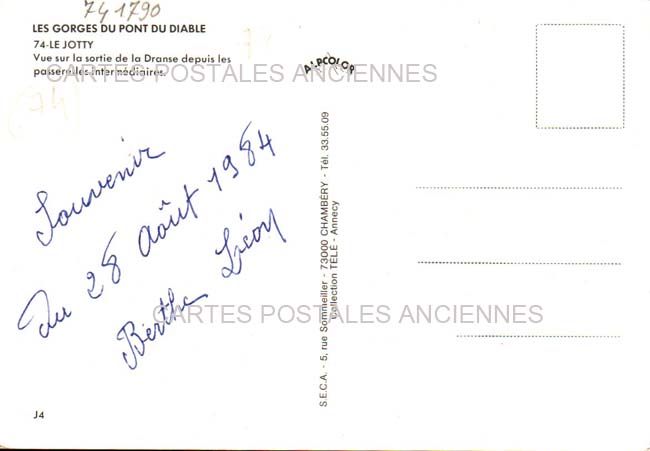 74 1790
LES GORGES DU PONT DU DIABLE
74-LE JOTTY
Vue sur la sortie de la Dranse depuis les
passerelles intermédiaires.
(74)
ALPCOLOR
CARTES POSTALES ANCIENNES
Souvenir
du 28 Août 1984
Berthe Léon
S.E.C.A. - 5, rue Sommeiller - 73000 CHAMBÉRY - Tél. 33.55.09
Collection TÉLÉ - Annecy
CARTES POSTALES ANCIENNES
J4